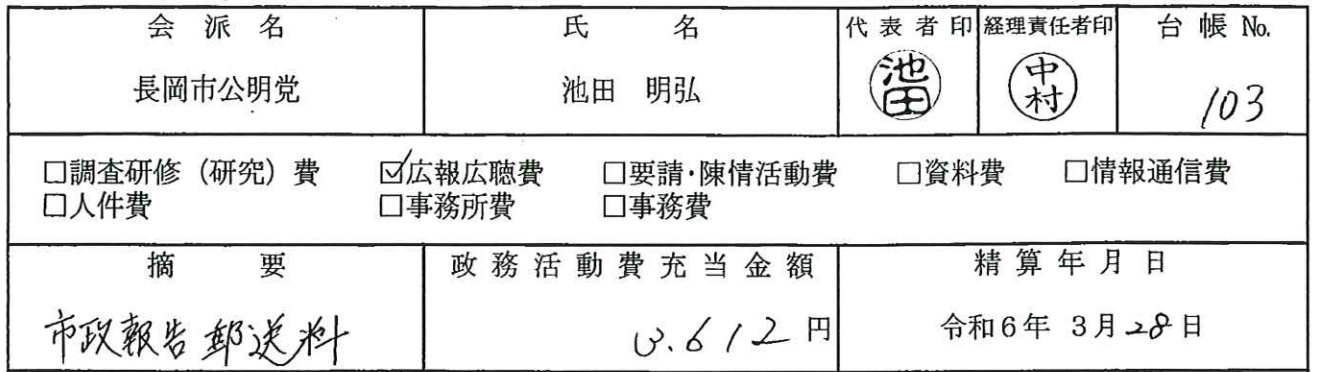 会派名 氏名 代表者印 経理責任者印 台帳No.
長岡市公明党 池田 明弘 池田 中村 103
□調査研修（研究）費 ☑広報広聴費 □要請・陳情活動費 □資料費 □情報通信費
□人件費 □事務所費 □事務費
摘要 政務活動費充当金額 精算年月日
市政報告郵送料 3.612円 令和6年 3月28日